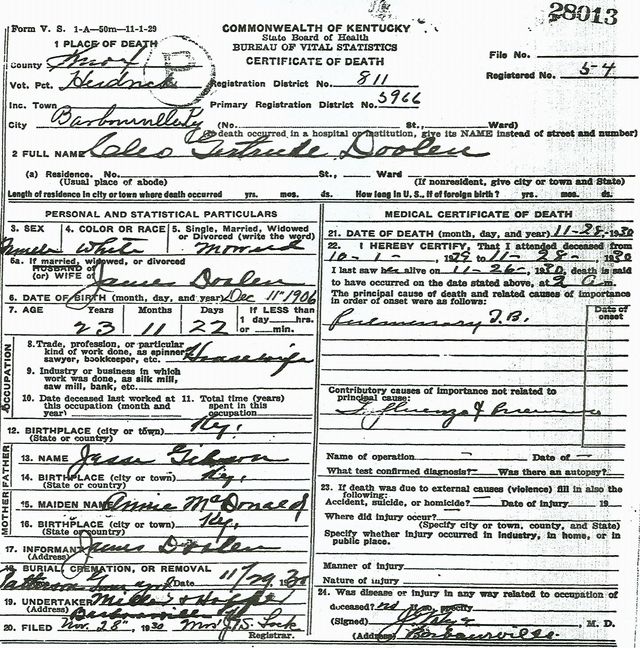 28013
Form V. S. 1-A—50m—11-1-29
COMMONWEALTH OF KENTUCKY
State Board of Health
BUREAU OF VITAL STATISTICS
CERTIFICATE OF DEATH
1 PLACE OF DEATH
County Knox
File No.
Registered No. 54
Vot. Pct. Hendrick Registration District No. 811
Inc. Town Primary Registration District No. 5966
City Barbourville Ky (No. St., Ward)
(If death occurred in a hospital or institution, give its NAME instead of street and number)
2 FULL NAME Cleo Gertrude Doolen
(a) Residence. No. St., Ward
(Usual place of abode) (If nonresident, give city or town and State)
Length of residence in city or town where death occurred yrs. mos. ds. How long in U. S., if of foreign birth? yrs. mos. ds.
PERSONAL AND STATISTICAL PARTICULARS
3. SEX 4. COLOR OR RACE 5. Single, Married, Widowed
or Divorced (write the word)
Female White
5a. If married, widowed, or divorced
HUSBAND of
(or) WIFE of James Doolen
6. DATE OF BIRTH (month, day, and year) Dec 11" 1906
7. AGE Years Months Days If LESS than
1 day hrs.
or min.
23 11 22
OCCUPATION
8. Trade, profession, or particular
kind of work done, as spinner,
sawyer, bookkeeper, etc. Housewife
9. Industry or business in which
work was done, as silk mill,
saw mill, bank, etc.
10. Date deceased last worked at
this occupation (month and
year)
11. Total time (years)
spent in this
occupation
12. BIRTHPLACE (city or town) Ky.
(State or country)
FATHER
13. NAME Jesse Gibson
14. BIRTHPLACE (city or town) Ky.
(State or country)
MOTHER
15. MAIDEN NAME Annie McDonald
16. BIRTHPLACE (city or town) Ky.
(State or country)
17. INFORMANT James Doolen
(Address)
18. BURIAL, CREMATION, OR REMOVAL
Patterson Date 11/29, 1930
19. UNDERTAKER Miller &
(Address) Barbourville Ky
20. FILED Nov. 28", 1930 Mrs J. S. Lock
Registrar.
MEDICAL CERTIFICATE OF DEATH
21. DATE OF DEATH (month, day, and year) 11-28-1930
22. I HEREBY CERTIFY, That I attended deceased from
10-1-, 1929 to 11-28-, 1930
I last saw her alive on 11-26-, 1930, death is said
to have occurred on the date stated above, at 2 a m.
The principal cause of death and related causes of importance
in order of onset were as follows:
Date of
onset
Pulmonary T.B.
Contributory causes of importance not related to
principal cause:
Influenza & Pneumonia
Name of operation Date of
What test confirmed diagnosis? Was there an autopsy?
23. If death was due to external causes (violence) fill in also the
following:
Accident, suicide, or homicide? Date of injury 19
Where did injury occur?
(Specify city or town, county, and State)
Specify whether injury occurred in industry, in home, or in
public place.
Manner of injury
Nature of injury
24. Was disease or injury in any way related to occupation of
deceased? no If so, specify
(Signed) M. D.
(Address) Barbourville